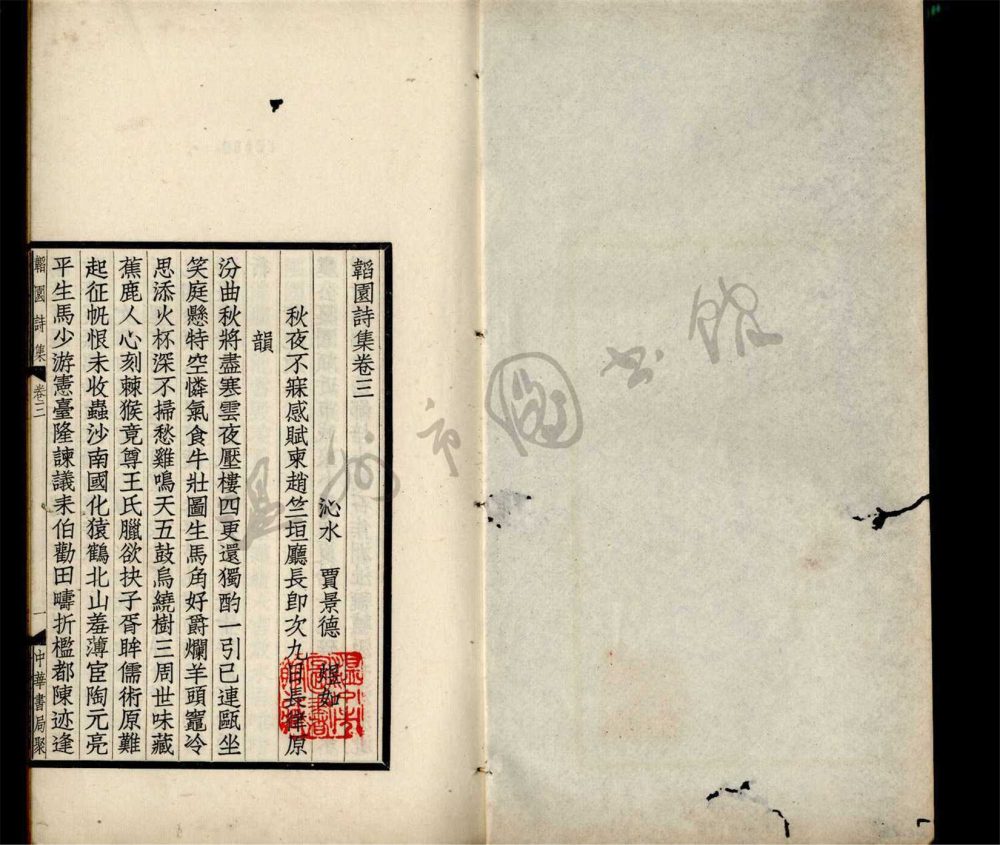 韜園詩集卷三
沁水 賈景德 煜如
秋夜不寐感賦柬趙竺垣廳長卽次九日長律原
韻
汾曲秋將盡寒雲夜壓樓四更還獨酌一引已連甌坐
笑庭懸特空憐氣食牛壯圖生馬角好爵爛羊頭竈冷
思添火杯深不掃愁雞鳴天五鼓烏繞樹三周世味藏
蕉鹿人心刻棘猴竟尊王氏臘欲抉子胥眸儒術原難
起征帆恨未收蟲沙南國化猿鶴北山羞薄宦陶元亮
平生馬少游憲臺隆諫議耒伯勸田疇折檻都陳迹逢
韜園詩集 卷三 一 中華書局聚
溫州市圖書館